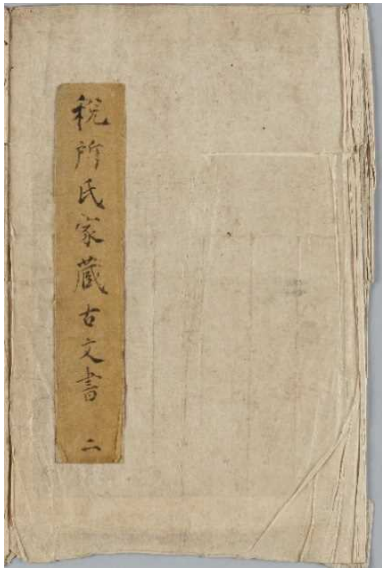 税所氏家蔵古文書 二